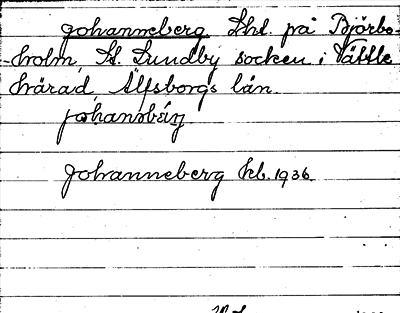 Johanneberg Lht. på Björbo-
-holm, St. Lundby socken i Vättle
härad, Älfsborgs län.
johannbärj
Johanneberg kb. 1936.